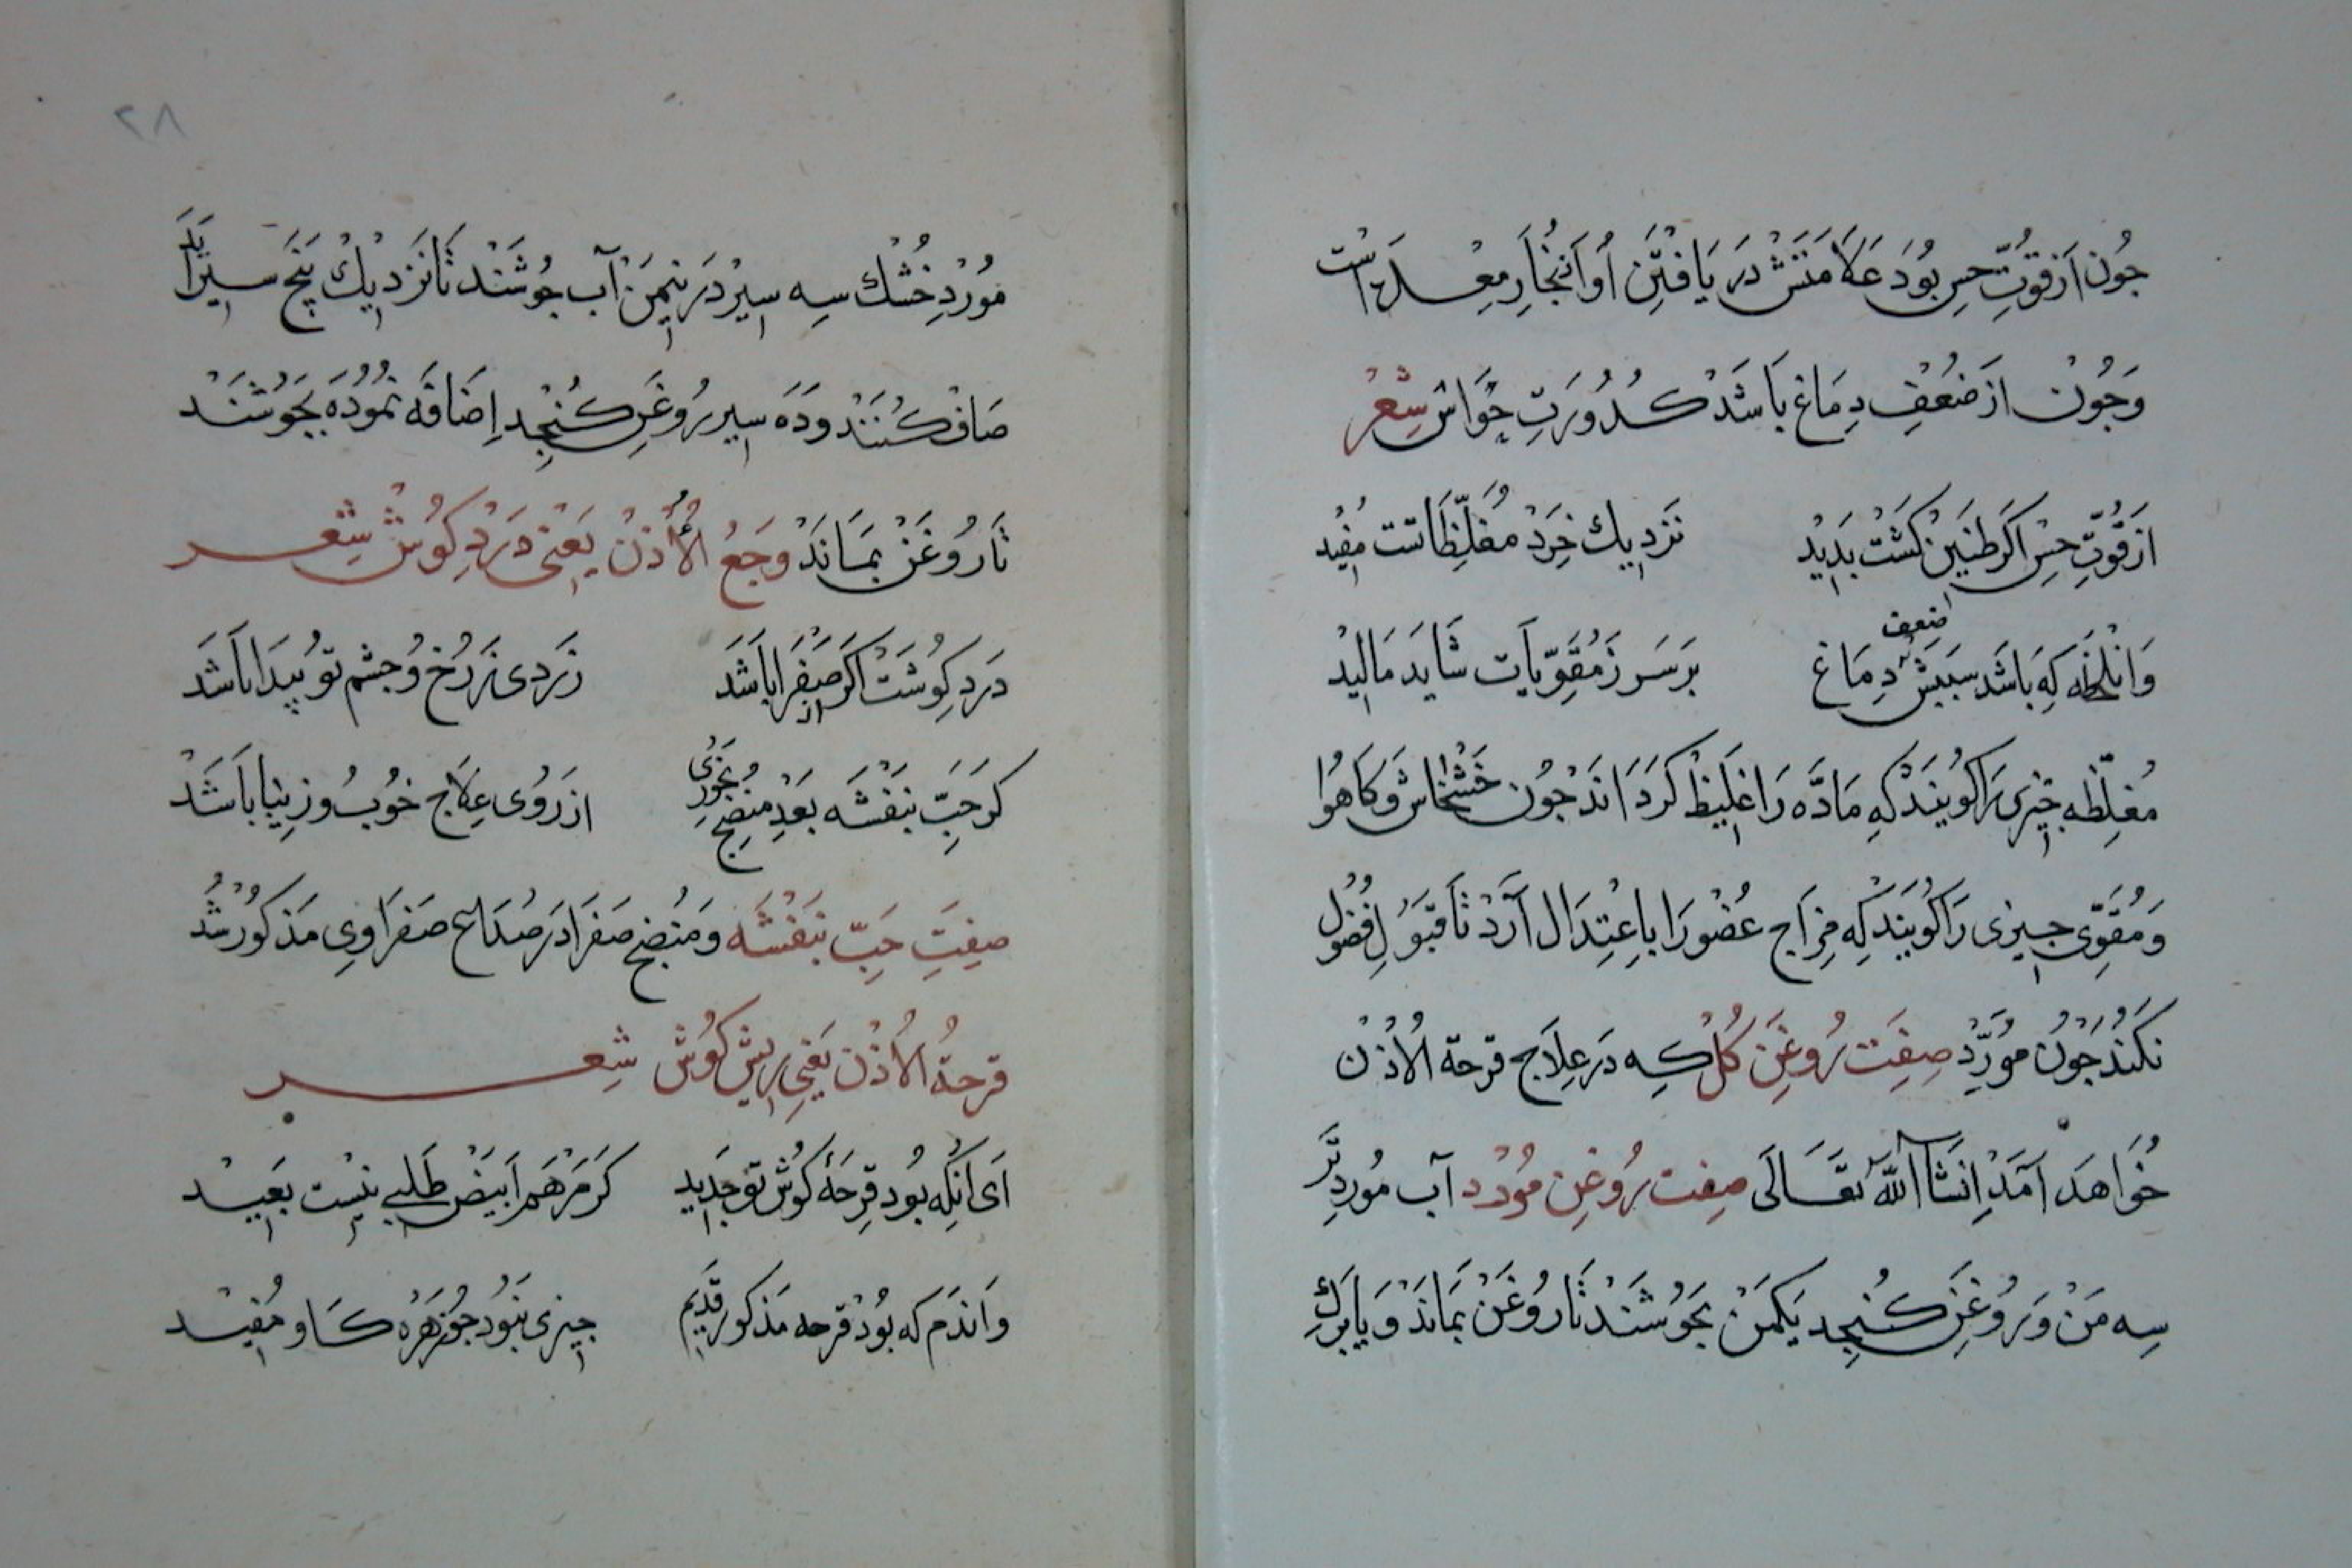 جون از قوّت حس بود علامتش دریافتن او انجار معده است
وجون از ضعف دماغ باشد کدورت حواس شعر
از قوّت حس اکر طنین کشت بدید نزدیك خرد مغلّظاتست مفید
وانلحظه که باشد سببش ضعف دماغ بر سر ز مقوّیات شاید مالید
مغلّظه جیزی را کویند که مادّه را غلیظ کرداند جون خشخاش و کاهوا
ومقوّی جیزی را کویند که مزاج عضو را باعتدال آرد تا قبول فضول
نکند جون مورد صفت روغن کل که در علاج قرحة الاذن
خواهد آمد انشا الله تعالی صفت روغن مورد آب مورد تر
سه من و روغن کنجد یکمن بجوشند تا روغن بماند و یا برك
۲۸
مورد خشك سه سیر در نیمن آب جوشند تا نزدیك پنج سیر آید
صاف کنند و ده سیر روغن کنجد اضافه نموده بجوشند
تا روغن بماند وجع الأذن یعنی درد کوش شعر
درد کوشت اکر از صفرا باشد زردی ز رخ و جشم تو پیدا باشد
کر حبّ بنفشه بعد منضج بخوری از روی علاج خوب و زیبا باشد
صفت حبّ بنفشه ومنضج صفرا در صداع صفراوی مذکور شد
قرحة الاذن یعنی ریش کوش شعر
ای انکه بود قرحۀ کوش تو جدید کر مرهم ابیض طلبی نیست بعید
واندم که بود قرحه مذکور قدیم جیزی نبود جو زهره کاو مفید